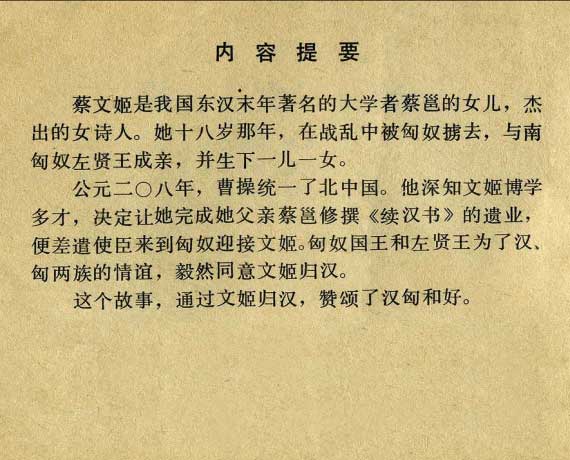 内容提要
蔡文姬是我国东汉末年著名的大学者蔡邕的女儿，杰
出的女诗人。她十八岁那年，在战乱中被匈奴掳去，与南
匈奴左贤王成亲，并生下一儿一女。
公元二〇八年，曹操统一了北中国。他深知文姬博学
多才，决定让她完成她父亲蔡邕修撰《续汉书》的遗业，
便差遣使臣来到匈奴迎接文姬。匈奴国王和左贤王为了汉、
匈两族的情谊，毅然同意文姬归汉。
这个故事，通过文姬归汉，赞颂了汉匈和好。